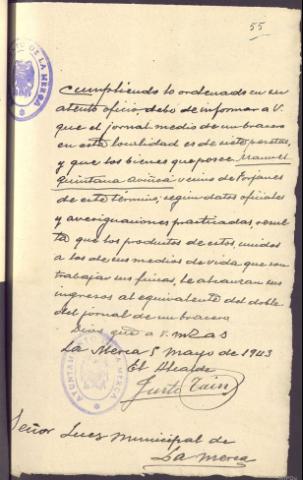 55
DE LA MERCA
Cumpliendo lo ordenado en su
atento oficio, debo de informar a V.
que el jornal medio de un bracero
en esta localidad es de siete pesetas,
y que los bienes que posee Manuel
Quintana vecino de Forjanes
de este término; según datos oficiales
y averiguaciones practicadas, resul
ta que los productos de estos, unidos
a los de sus medios de vida que son
trabajar sus fincas, le alcanzan sus
ingresos al equivalente del doble
del jornal de un bracero
Dios gue a V. m&as
La Merca 5 Mayo de 1943
El Alcalde
Justo
AYUNTAMIENTO DE LA MERCA
Señor Juez Municipal de
La Merca